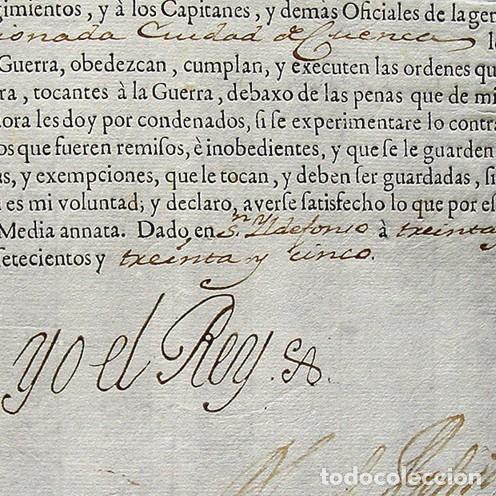 gimientos, y à los Capitanes, y demás Oficiales de la gen
cionada Ciudad de Cuenca
Guerra, obedezcan, cumplan, y executen las ordenes qu
ra, tocantes à la Guerra, debaxo de las penas que de mi
lora les doy por condenados, si se experimentare lo contr
os que fueren remisos, è inobedientes, y que se le guarden
as, y exempciones, que le tocan, y deben ser guardadas, si
es mi voluntad; y declaro, averse satisfecho lo que por es
Media annata. Dado en Sn. Yldefonso à treinta
setecientos y treinta y cinco.
yo el Rey
todocoleccion